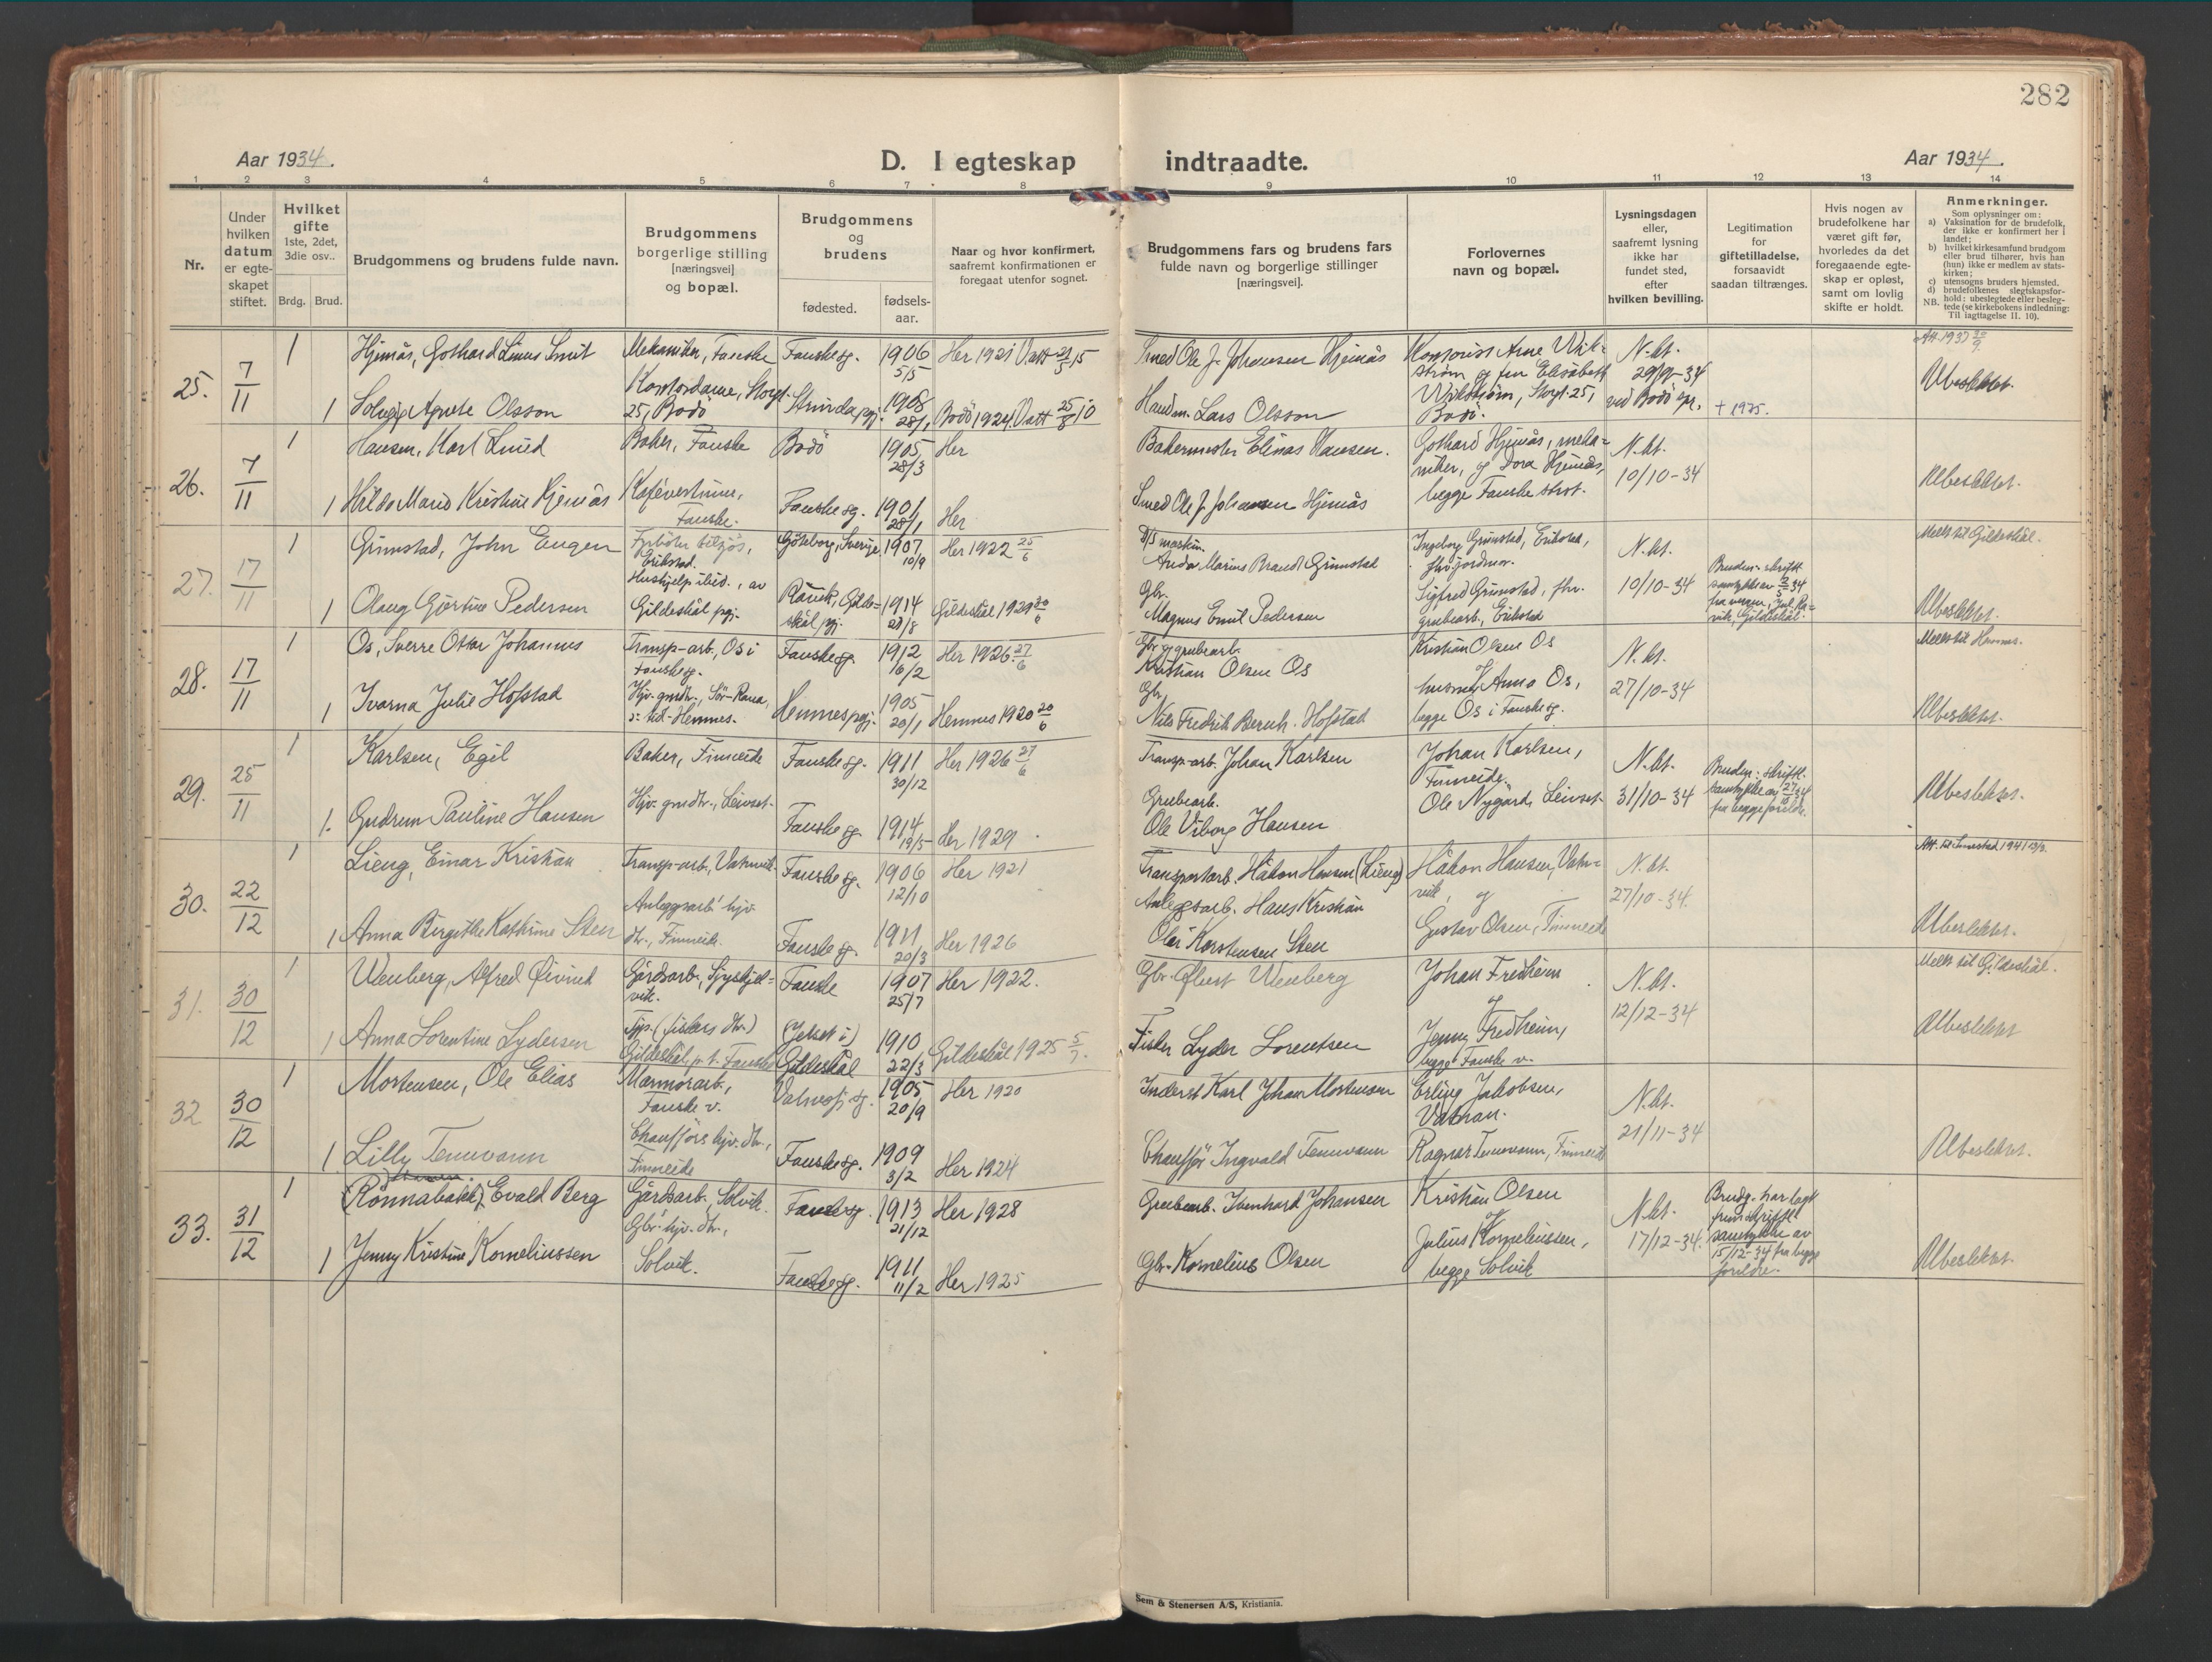 282
Aar 1934.
D. I egteskap indtraadte.
Aar 1934.
1 2 3 4 5 6 7 8 9 10 11 12 13 14
Nr.
Under hvilken datum er egte-skapet stiftet.
Hvilket gifte
1ste, 2det, 3die osv..
Brdg. Brud.
Brudgommens og brudens fulde navn.
Brudgommens borgerlige stilling [næringsvei] og bopæl.
Brudgommens og brudens
fødested. fødsels-aar.
Naar og hvor konfirmert, saafremt konfirmationen er foregaat utenfor sognet.
Brudgommens fars og brudens fars fulde navn og borgerlige stillinger [næringsvei].
Forlovernes navn og bopæl.
Lysningsdagen eller, saafremt lysning ikke har fundet sted, efter hvilken bevilling.
Legitimation for giftetilladelse, forsaavidt saadan tiltrænges.
Hvis nogen av brudefolkene har været gift før, hvorledes da det foregaaende egte-skap er opløst, samt om lovlig skifte er holdt.
Anmerkninger.
Som oplysninger om:
a) Vaksination for de brudefolk, der ikke er konfirmert her i landet;
b) hvilket kirkesamfund brudgom eller brud tilhører, hvis han (hun) ikke er medlem av stats-kirken;
c) utensogns bruders hjemsted.
d) brudefolkenes slegtskapsfor-hold: ubeslegtede eller besleg-tede (se kirkebokens indledning: Til iagttagelse II. 10).
NB.
25. 7/11
1 Hjemås, Gothard Linus Smit Mekaniker, Fauske Fauske sg. 1906 5/5 Her 1921
Smed Ole J. Johansen Hjemås
Kontorist Arne Wik-
strøm og fru Elisabeth
Wikstrøm, Storgt. 25,
Bodö.
N. kt.
29/9-34
ved Bodö spr.
+ 1975.
1 Solveig Agnete Olsson Kontordame, Storgt. 25, Bodö Strinda pgj. 1908 28/1 Bodö 1924.
Handm. Lars Olsson
Ubeslektet.
26. 7/11
1 Hansen, Karl Smed Baker, Fauske Bodö 1905 28/3 Her
Bakermester Elinas Hansen.
Gothard Hjemås, meka-
niker, og Dora Hjemås,
begge Fauske
N. kt.
10/10-34
1 Hilda Marie Kristine Hjemås Kafévertinne, Fauske. Fauske sg. 1901 28/1 Her
Smed Ole J. Johansen Hjemås
Ubeslektet.
27. 17/11
1 Grimstad, John Eugen Eribstad. Göteborg, Sverige 1907 10/9 Her 1922 25/6
Anda Marius Brandt Grimstad
Ingeborg Grimstad, Eribstad,
fhv. jordmor.
Sigfred Grimstad, fhv.
grubearb., Eribstad
N. kt.
10/10-34
Meldt til Gildeskål.
1 Olaug Gjertine Pedersen Hushjelp ibid., av Gildeskål pgj. Gilde-skål pgj. 1914 28/8 Gildeskål 1929 30/6
Gbr.
Magnus Emil Pedersen
Ubeslektet.
28. 17/11
1 Os, Sverre Ottar Johannes Transp-arb., Os i Fauske sg. Fauske sg. 1912 16/2 Her 1926 27/6
Gbr. og grubearb.
Kristian Olsen Os
Kristian Olsen Os
og
husmor Anna Os,
begge Os i Fauske sg.
N. kt.
27/10-34
Meldt til Hemnes.
1 Ivarna Julie Hofstad Hjv. gmdtr., Sör-Rana, Hemnes pgj. 1905 20/1 Hemnes 1920 20/6
Gbr.
Nils Fredrik Bernh. Hofstad
Ubeslektet.
29. 25/11
1 Karlsen, Egil Baker, Finneide Fauske sg. 1911 30/12 Her 1926 27/6
Transp-arb. Johan Karlsen
Johan Karlsen,
Finneide.
Ole Nygård, Leivset.
N. kt.
31/10-34
Bruden: skriftl.
samtykke av
fra begge foreldre.
1. Gudrun Pauline Hansen Hjv. gmdtr., Leivset. Fauske sg. 1914 19/5 Her 1929
Grubearb.
Ole Viborg Hansen
Ubeslektet.
30. 22/12
1 Lieng, Einar Kristian Transp-arb., Vatnvik Fauske sg. 1906 12/10 Her 1921
Transportarb. Håkon Hansen (Lieng)
Håkon Hansen, Vatn-
vik, og
Gustav Olsen, Finneide
N. kt.
27/10-34.
1 Anna Birgithe Kathrine Sten Anleggsarb. hjv. dtr., Finneide. Fauske sg. 1911 20/3 Her 1926
Anleggsarb. Hans Kristian
Olai Korstensen Sten
Ubeslektet.
31. 30/12
1 Wenberg, Alfred Øivind Gårdsarb., Fauske 1907 25/7 Her 1922.
Gbr. Wenberg
Johan Fredheim
og
Jenny Fredheim,
begge Fauske v.
N. kt.
12/12-34
Meldt til Gildeskål.
1 Anna Lorentine Lydersen Tjp. (fiskers dtr.) Gildeskål, p. t. Fauske Gildeskål 1910 22/3 Gildeskål 1925 5/7.
Fisker Lyder Lorentsen
Ubeslektet
32 30/12
1 Mortensen, Ole Elias Marmorarb., Fauske v. Valnesfj. sg. 1905 20/9 Her 1920
Inderst Karl Johan Mortensen
Erling Jakobsen,
Vatnan.
Ragnar Tennvann, Finneide
N. kt.
21/11-34
1. Lilly Tennvann Chaufförs hjv. dtr., Finneide Fauske sg. 1909 3/2 Her 1924
Chauffør Ingvald Tennvann
Ubeslektet.
33. 31/12
1 (Rönnabakk), Evald Berg Gårdsarb., Solvik. Fauske sg. 1913 21/12 Her 1928
Grubearb. Ibenhard Johansen
Kristian Olsen
og
Julius Korneliussen,
begge Solvik
N. kt.
17/12-34.
Brudg. har lagt
frem skriftl.
samtykke av
15/12-34 fra begge
foreldre.
1 Jenny Kristine Korneliussen Gbr. hjv. dtr., Solvik. Fauske sg. 1911 11/2 Her 1925
Gbr. Kornelius Olsen
Ubeslektet.
Sem & Stenersen A/S, Kristiania.